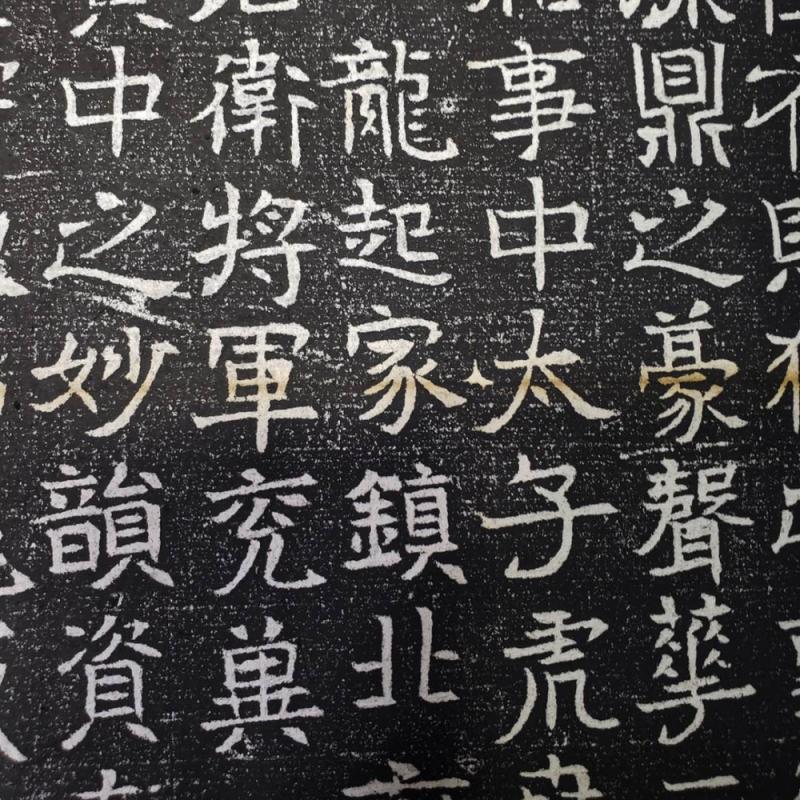 鼎之豪聲華
事中太子虎
龍起家鎮北
衛將軍兖冀
中之妙韻資